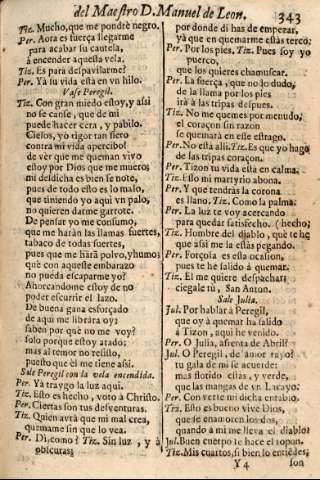 del Maestro D. Manuel de Leon. 343
Tiz. Mucho, que me pondrè negro.
Per. Aora es fuerça llegarme
para acabar su cautela,
à encender aquesta vela.
Tiz. Es para despavilarme?
Per. Yà su vida està en vn hilo.
Vase Peregil.
Tiz. Con gran miedo estoy, y assi
no se canse, que de mi
puede hacer cera, y pabilo.
Cielos, yo rigor tan fiero
contra mi vida apercibo!
de vèr que me queman vivo
estoy por Dios que me muero;
mi desdicha es bien se note,
pues de todo esto es lo malo,
que tiniendo yo aqui vn palo,
no quieren darme garrote.
De pensar yo me consumo,
que me haràn las llamas fuertes,
tabaco de todas suertes,
pues que me harà polvo, yhumo;
què con aqueste embarazo
no pueda escaparme yo?
Ahorcandome estoy de no
poder escurrir el lazo.
De buena gana esforçado
de aqui me librara oy;
saben por què no me voy?
solo porque estoy atado;
mas al temor no resisto,
puesto que èl me tiene assi.
Sale Peregil con la vela encendida.
Per. Yà traygo la luz aqui.
Tiz. Esto es hecho, voto à Christo.
Per. Ciertas son tus desventuras.
Tiz. Quien avrà que mi mal crea,
quemame sin que lo vea.
Per. Di, como? Tiz. Sin luz, y à
obscuras;
por donde di has de empezar,
yà que en quemarme estàs terco;
Per. Por los pies. Tiz. Pues soy yo
puerco,
que los quieres chamuscar.
Per. La fuerça, que no lo dudo,
de la llama por los pies
irà à las tripas despues.
Tiz. No me quemes por menudo;
el coraçon sin razon
se quemarà en este estrago.
Per. No està alli. Tiz. Es que yo hago
de las tripas coraçon.
Per. Tizon tu vida està en calma.
Tiz. Esto mi martyrio abona.
Per. Y que tendràs la corona
es llano. Tiz. Como la palma.
Per. La luz te voy acercando
para quedar satisfecho. (hecho,
Tiz. Hombre del diablo, què te he
que assi me la estàs pegando.
Per. Forçosa es esta ocasion,
pues te he salido à quemar.
Tiz. El me quiere despachar;
ciegale tù, San Anton.
Sale Julia.
Jul. Por hablar à Peregil,
que oy à quemar ha salido
à Tizon, aqui he venido.
Per. O Julia, afrenta de Abril!
Jul. O Peregil, de amor rayo!
tu gala de mi se acuerde:
mas florido estàs, y verde,
que las mangas de vn Lacayo.
Per. Con verte mi dicha entablo,
Tiz. Esto es bueno vive Dios,
que se enamoren los dos,
quando à mi me lleva el diablo!
Jul. Buen cuerpo te hace el jopon.
Tiz. Mis quartos, si bien lo entiedes,
Y 4 son